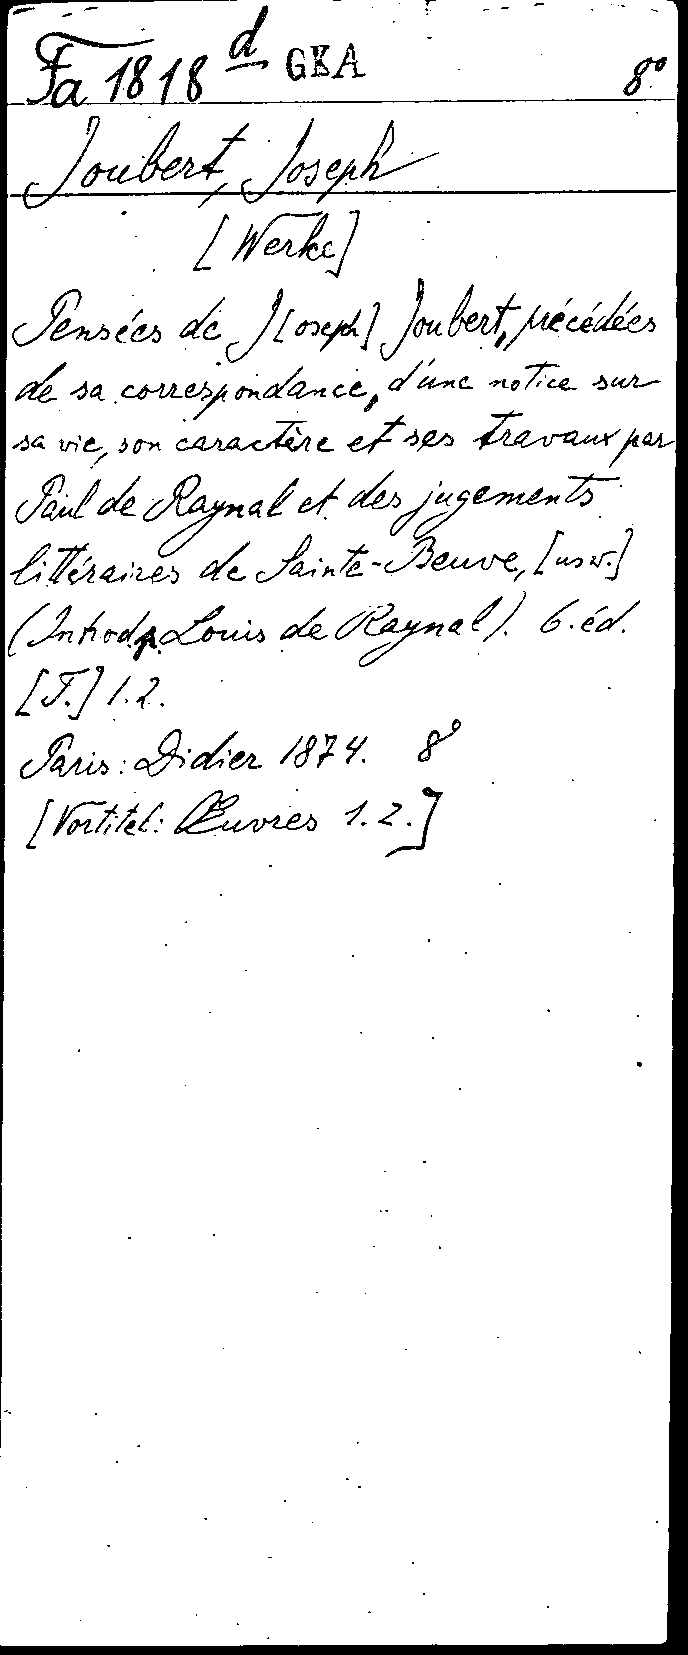 Fa 1818 d GKA 8°
Joubert, Joseph
[Werke]
Pensées de J[oseph] Joubert, précédées
de sa correspondance, d'une notice sur
sa vie, son caractère et ses travaux par
Paul de Raynal et des jugements
littéraires de Sainte-Beuve, [usw.]
(Introd. Louis de Raynal). 6. éd.
[T.] 1.2.
Paris: Didier 1874. 8°
[Vortitel: Œuvres 1.2.]